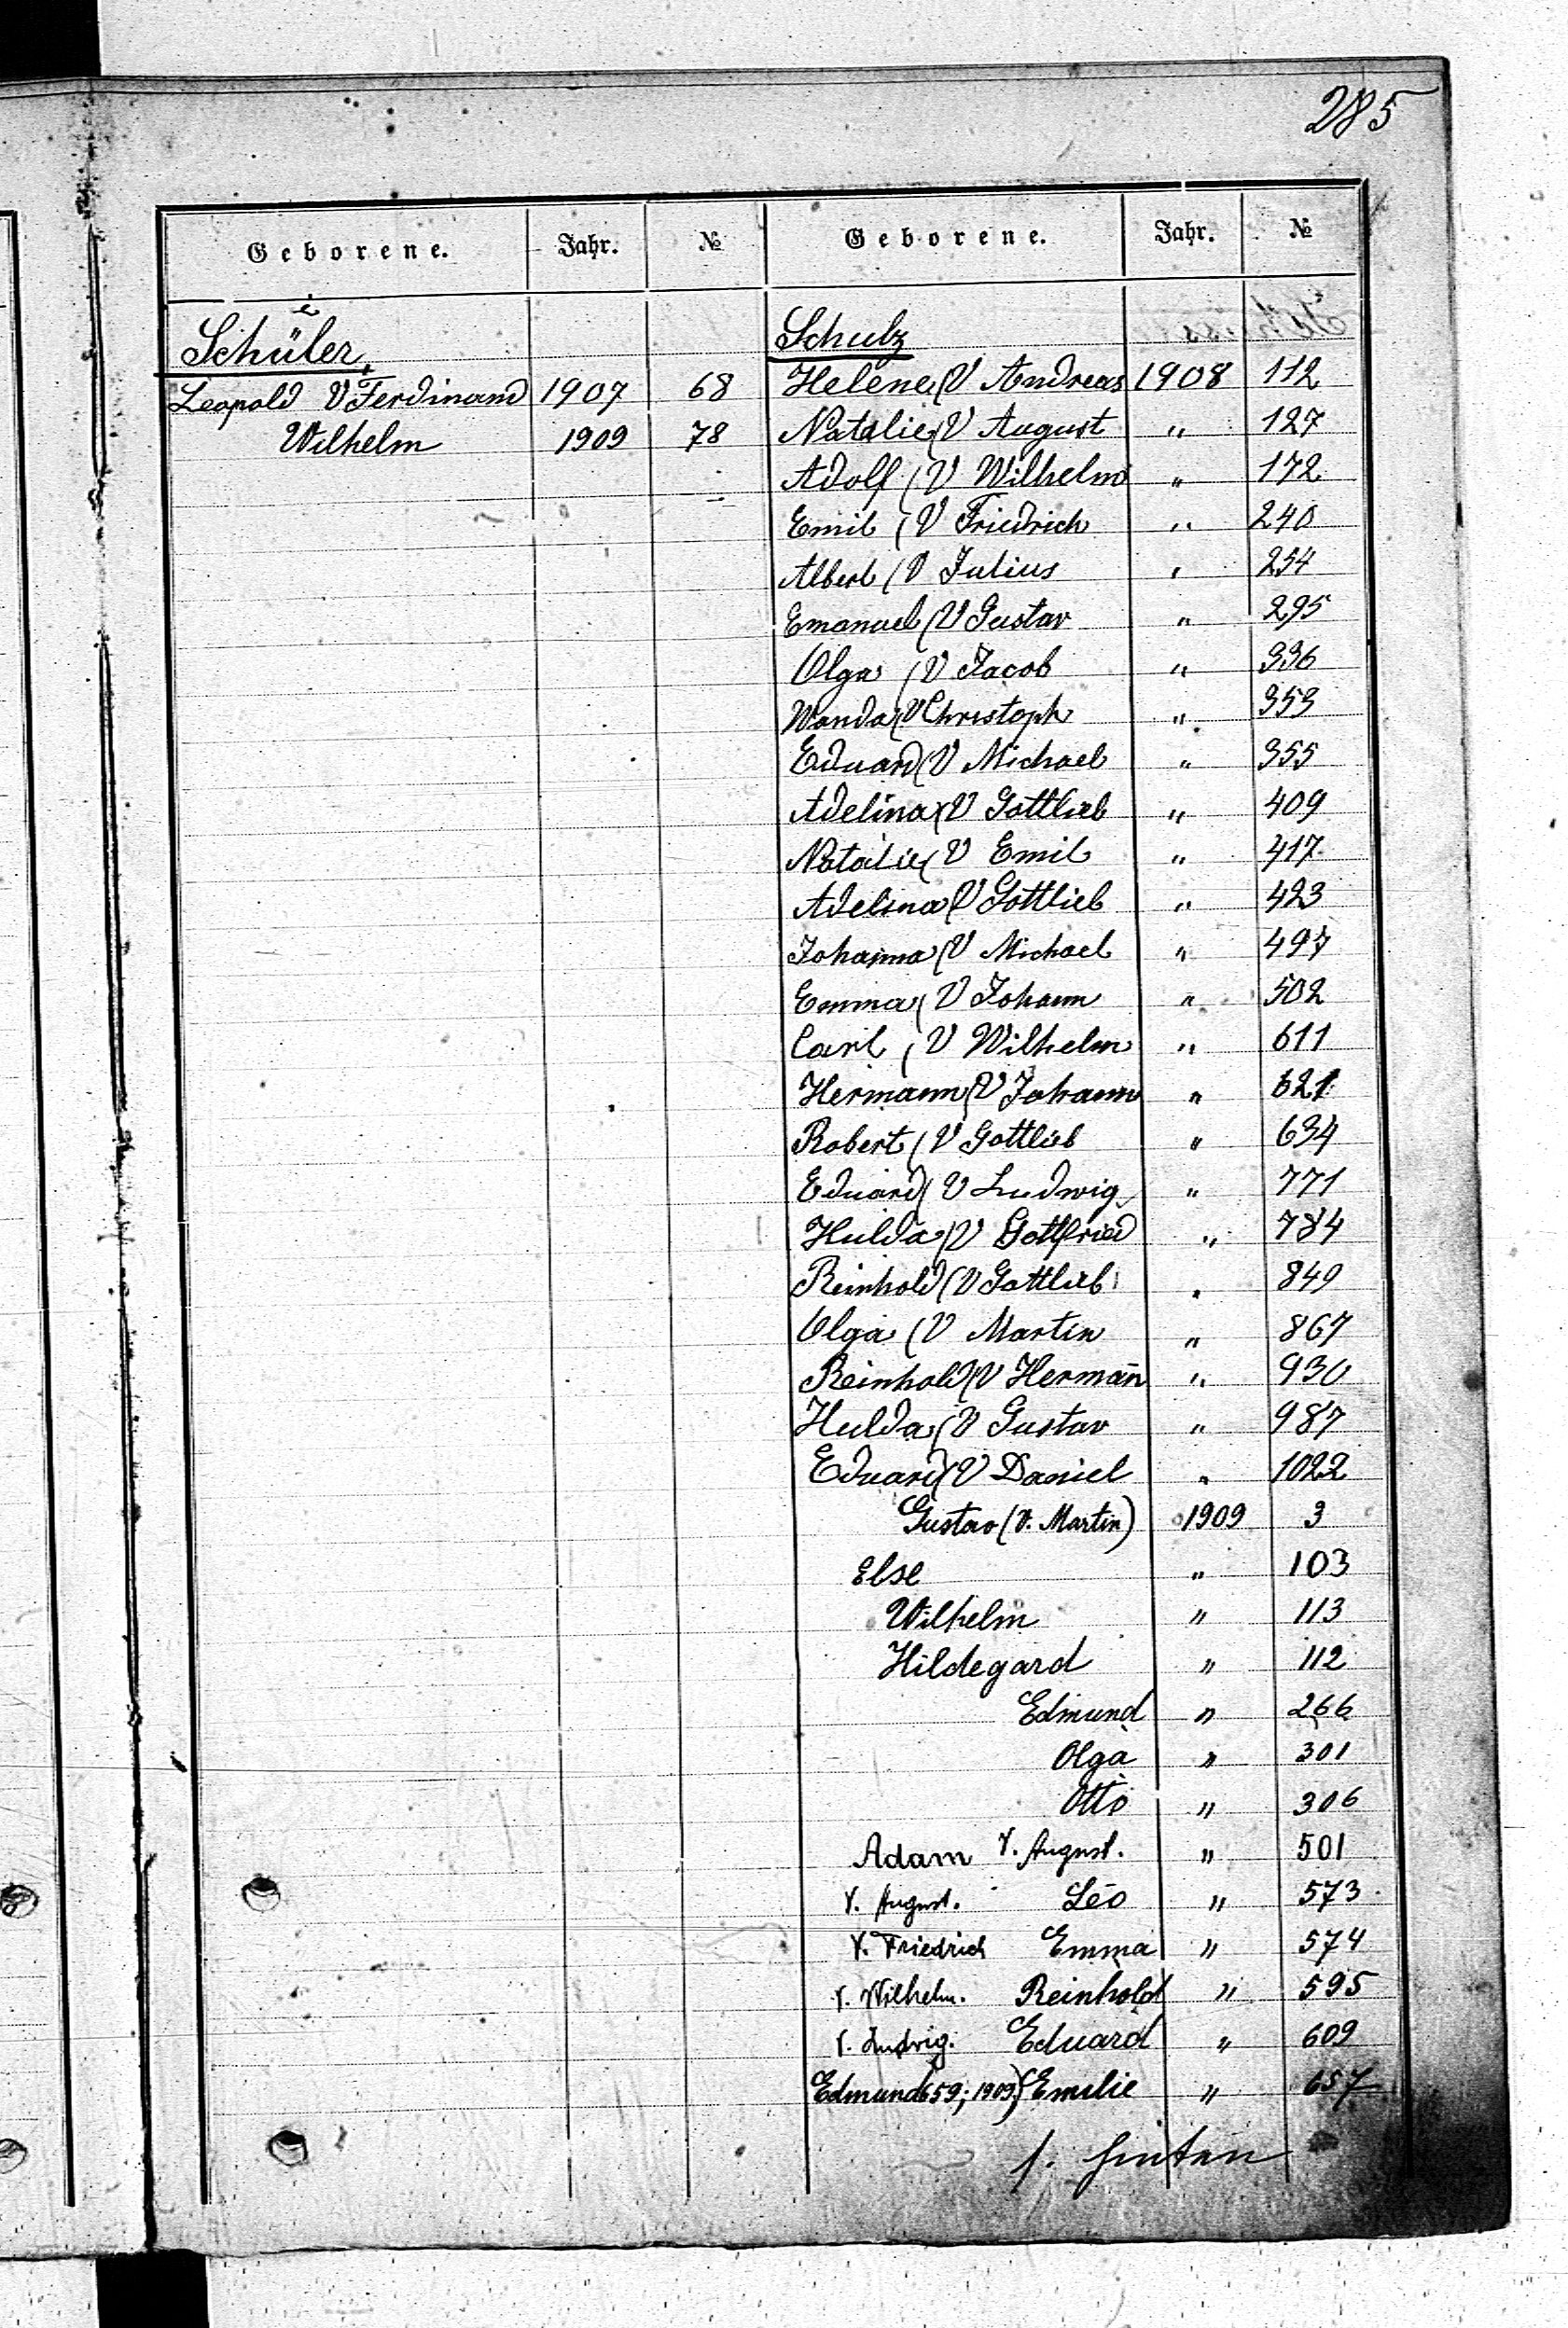 285
Geborene. Jahr. №
Schüler
Leopold V Ferdinand 1907 68
Wilhelm 1909 78
Geborene. Jahr. №
Schulz
Helene (V Andreas 1908 112
Natalie (V August " 127
Adolf (V Wilhelm " 172
Emil (V Friedrich " 240
Albert (V Julius " 254
Emanuel (V Gustav " 295
Olga (V Jacob " 336
Wanda (V Christoph " 353
Eduard (V Michael " 355
Adelina (V Gottlieb " 409
Natalie (V Emil " 417
Adelina (V Gottlieb " 423
Johanna (V Michael " 497
Emma (V Johann " 502
Carl (V Wilhelm " 611
Hermann (V Johann " 621
Robert (V Gottlieb " 634
Eduard (V Ludwig " 771
Hulda (V Gottfried " 784
Reinhold (V Gottlieb " 849
Olga (V Martin " 867
Reinhold (V Hermañ " 930
Hulda (V Gustav " 987
Eduard (V Daniel " 1022
Gustav (V. Martin) 1909 3
Else " 103
Wilhelm " 113
Hildegard " 112
Edmund " 266
Olga " 301
Otto " 306
Adam V. August. " 501
V. August. Leo " 573
V. Friedrich Emma " 574
V. Wilhelm. Reinhold " 595
V. Ludwig. Eduard " 609
Edmund 659; 1909) Emilie " 657
s. hinten